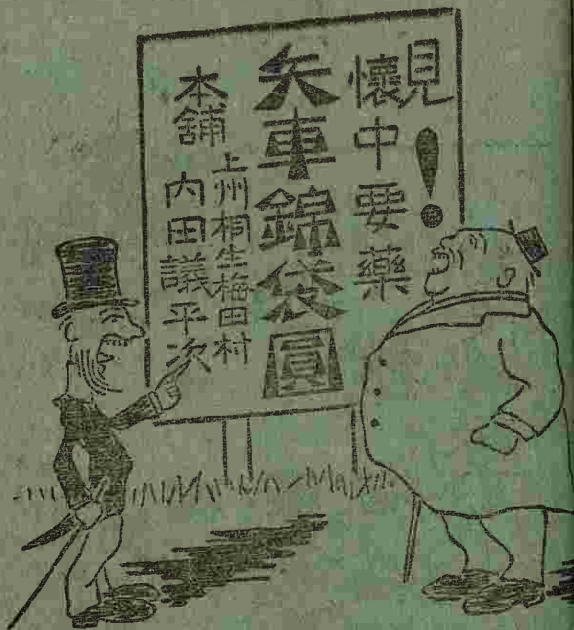 見！
懷中要藥
矢車錦袋圓
上州桐生梅田村
本舖 内田議平次